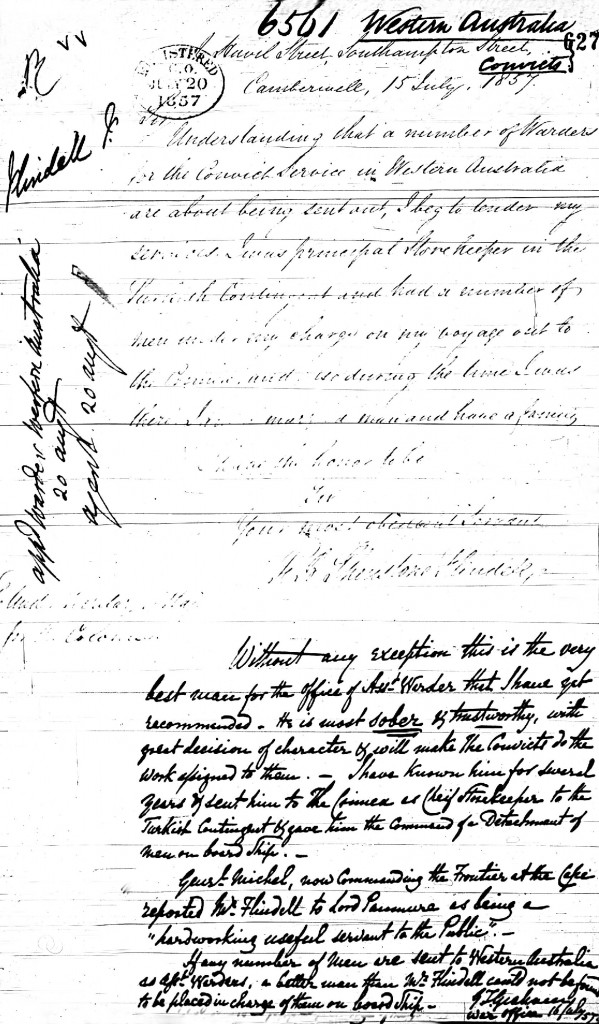 6561 Western Australia
627
Convicts
Street, Southampton Street,
Camberwell, 15 July, 1857.
REGISTERED
C.O.
JULY 20
1857
Sir
Understanding that a number of Warders
for the Convict Service in Western Australia
are about being sent out, I beg to tender my
services. I was principal Storekeeper in the
Turkish Contingent and had a number of
men under my charge on my voyage out to
the Crimea and also during the time I was
there I am a married man and have a family
I have the honor to be
Sir
Your most obedient Servant
Flindell
for the Colonies
R
Flindell
appd Warder Western Australia
20 augt
agent 20 augt
Without any exception this is the very
best man for the office of Asst. Warder that I have yet
recommended. He is most sober & trustworthy, with
great decision of character & will make the Convicts do the
work assigned to them. — I have known him for several
years & sent him to The Crimea as Cheif Storekeeper to the
Turkish Contingent & gave him the Command of a Detachment of
men on board Ship. —
Genrl. Michel, now Commanding the Frontier at the Cape
reported Mr. Flindell to Lord Panmure as being a
"hardworking useful servant to the Public". —
If any number of men are sent to Western Australia
as Asst. Warders, a better man than Mr. Flindell could not be found
to be placed in charge of them on board Ship —
War Office 16 July 57